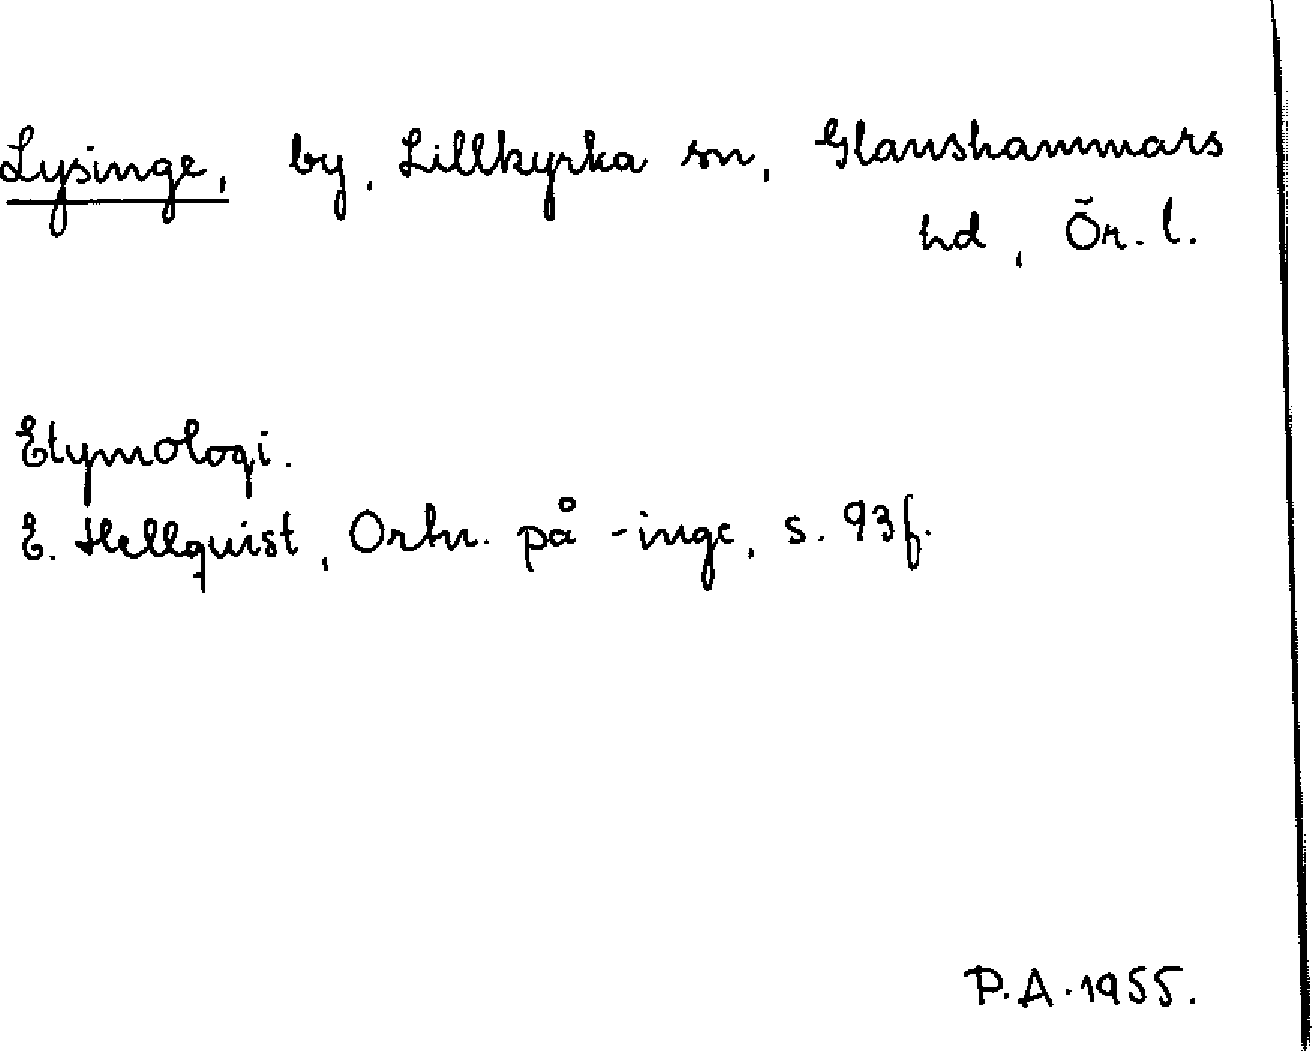 Lysinge, by, Lillkyrka sn, Glanshammars
hd, Ör. l.
Etymologi.
E. Hellquist, Ortn. på -inge, s. 93f.
P.A. 1955.